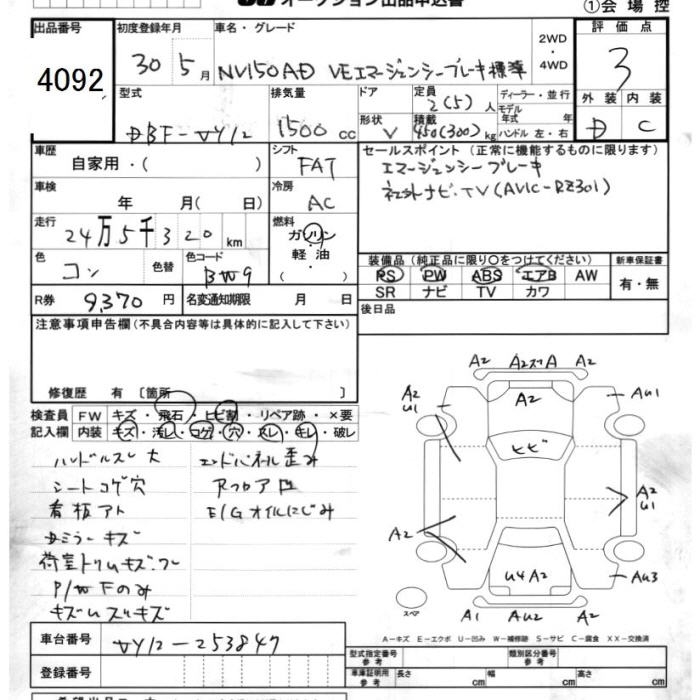 オークション出品申込書
①会場控
出品番号
4092
初度登録年月
30年5月
車名・グレード
NV150AD VEエマージェンシーブレーキ標準
2WD・4WD
評価点
3
外装 内装
D C
型式
DBF-VY12
排気量
1500cc
ドア
形状
V
定員
2(5)人
積載
450(300)kg
ディーラー・並行
モデル年式 年
ハンドル 左・右
車歴
自家用・( )
シフト
FAT
セールスポイント(正常に機能するものに限ります)
エマージェンシーブレーキ
社外ナビ.TV(AVIC-RZ301)
車検
年 月( 日)
冷房
AC
走行
24万5千320km
燃料
ガソリン
軽油
( ・ )
色
コン
色替
色コード
BW9
装備品(純正品に限り○をつけてください)
PS PW ABS エアB AW
SR ナビ TV カワ
新車保証書
有・無
R券
9,370円
名変通知期限 月 日
後日品
注意事項申告欄(不具合内容等は具体的に記入して下さい)
修復歴 有〔箇所 〕
検査員記入欄
FW キズ・飛石・ヒビ割・リペア跡・×要
内装 キズ・汚レ・コゲ・穴・スレ・キレ・破レ
ハンドルスレ大
シートコゲ穴
看板アト
Dミラーキズ
荷室トリムキズ.ワレ
P/W Fのみ
エンドパネル歪み
RフロアU
E/Gオイルにじみ
A2 A2ズA A2
A2 U1
A2
AU1
ヒビ
A2 U1
A2
U4A2
AU3
スペア
A1 AU2 A2
A-キズ E-エクボ U-凹み W-補修跡 S-サビ C-腐食 XX-交換済
車台番号
VY12-253847
登録番号
型式指定番号 参考
類別区分番号 参考
車庫証明用 参考
長さ cm
幅 cm
高さ cm